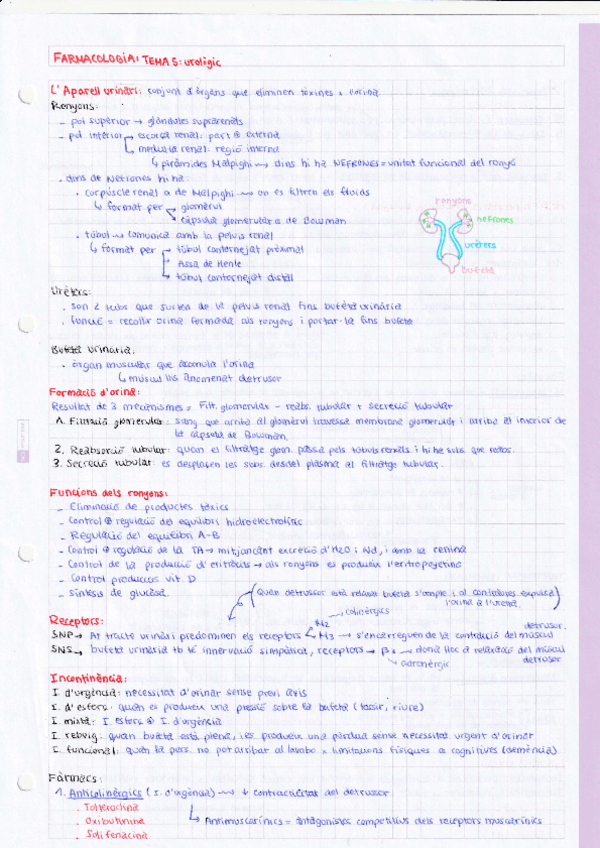 FARMACOLOGIA: TEMA 5: urològic
L'Aparell urinari: conjunt d'òrgans que eliminen toxines x l'orina.
Renyons:
- pol superior → glàndules suprarenals
- pol inferior → escorça renal: part + externa
→ medul·la renal: regió interna
↳ piràmides Malpighi → dins hi ha NEFRONES = unitat funcional del ronyó
· dins de Nefrones hi ha:
· corpúscle renal o de Malpighi → on es filtren els fluids
↳ format per → glomèrul
→ càpsula glomerular o de Bowman
· túbol → comunica amb la pelvis renal
↳ format per → túbol contornejat proximal
→ Assa de Henle
→ túbol contornejat distal
renyons
nefrones
urèters
bufeta
Urèters:
· son 2 tubs que surten de la pelvis renal fins bufeta urinària
· funció = recollir orina formada als ronyons i portar-la fins bufeta
Bufeta urinària:
· òrgan muscular que acomula l'orina
↳ múscul llis anomenat detrusor
Formació d'orina:
Resultat de 3 mecanismes = Filt. glomerular - reabs. tubular + secreció tubular
1. Filtració glomerular: sang que arriba al glomèrul travessa membrana glomerular i arriba al interior de
la càpsula de Bowman.
2. Reabsorció tubular: quan el filtratge glom. passa pels túbuls renals i hi ha subs. que
3. Secreció tubular: es desplacen les subs. desdel plasma al filtratge tubular.
Funcions dels ronyons:
- Eliminació de productes tòxics
- Control + regulació del equilibri hidroelectrolític
- Regulació del equilibri A-B
- Control + regulació de la TA → mitjançant excreció d'H2O i Na, i amb la renina
- Control de la producció d'eritròcits → als ronyons es produeix l'eritropoyetina
- Control producció vit. D
- síntesis de glucosa.
(Quan detrussor està relaxat bufeta s'omple i al contraures expulsa
l'orina a l'uretra.)
Receptors:
colinèrgics
SNP → Al tracte urinari predominen els receptors M2 M3 → s'encarreguen de la contracció del múscul
detrusor.
SNS → bufeta urinària tb té innervació simpàtica, receptors → β3 → dona lloc a relaxació del múscul
detrusor
adrenèrgic
Incontinència:
I. d'urgència: necessitat d'orinar sense previ avis
I. d'esforç: quan es produeix una pressió sobre la bufeta (tossir, riure)
I. mixta: I. esforç + I. d'urgència
I. rebuig: quan bufeta està plena, i es produeix una pèrdua sense necessitat urgent d'orinar
I. funcional: quan la pers. no pot arribar al lavabo x limitacions físiques o cognitives (demència)
Fàrmacs:
1. Anticolinèrgics (I. d'urgència) → ↓ contractilitat del detrusor
· Tolterodina
· Oxibutinina
· Solifenacina
↳ Antimuscarínics = antagonistes competitius dels receptors muscarínics